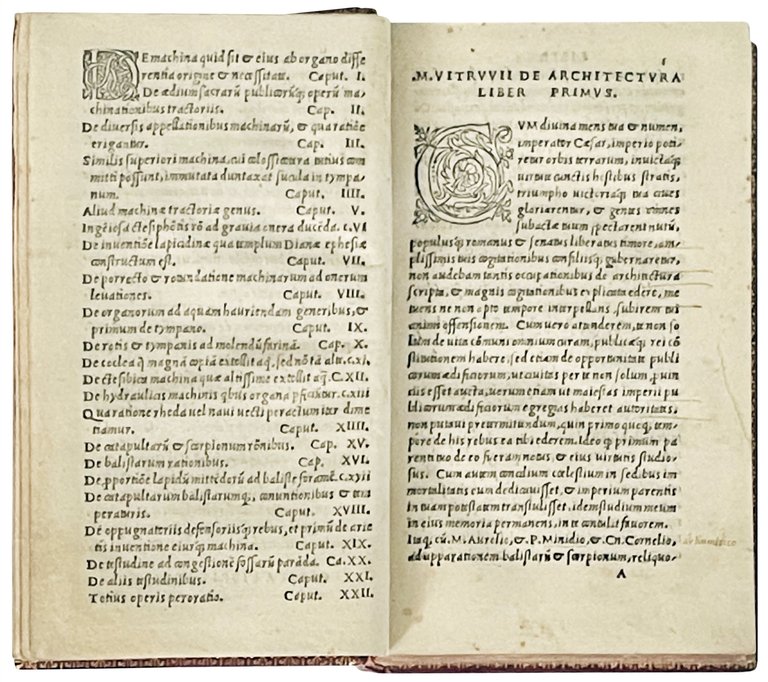 DE machina quid sit & eius ab organo diffe
rentia origine & necessitate. Caput. I.
De ædium sacrarũ publicorũq; operũ ma
chinationibus tractoriis. Cap. II.
De diversis appellationibus machinarũ, & qua ratiõe
erigantur. Cap. III.
Similis superiori machina, cui colossicotera tutius com
mitti possunt, immutata duntaxat sucula in tympa
num. Caput. IIII.
Aliud machinæ tractoriæ genus. Caput. V.
Ingẽiosa ctesiphõtis rõ ad gravia onera ducẽda. c.VI
De inventiõe lapicidinæ qua templum Dianæ ephesiæ
constructum est. Caput. VII.
De porrecto & rotundatione machinarum ad onerum
levationes. Caput. VIII.
De organorum ad aquam hauriendam generibus, &
primum de tympano. Caput. IX.
De rotis & tympanis ad molendũ farinã. Cap. X.
De coclea q̃ magnã copiã extollit aq̃, sed nõ tã alte. c.XI.
De ctesibica machina quæ altissime extollit aq̃. C.XII.
De hydraulicis machinis qbus organa pficiũtur. c.xiii
Qua ratione rheda vel navi vecti peractum iter dime
tiamur. Caput. XIIII.
De catapultarũ & scorpionum rõnibus. Cap. XV.
De balistarum rationibus. Cap. XVI.
De pportiõe lapidũ mittẽdorũ ad balistæ foramẽ. c.xvii
De catapultarum balistarumq;, contentionibus & tem
peraturis. Caput. XVIII.
De oppugnatoriis defensoriisq; rebus, et primũ de arie
tis inventione eiusq; machina. Caput. XIX.
De testudine ad congestionẽ fossarũ parãda. Ca. XX.
De aliis testudinibus. Caput. XXI.
Totius operis peroratio. Caput. XXII.
1
.M. VITRVVII DE ARCHITECTVRA
LIBER PRIMVS.
CVM divina mens tua & numen,
imperator Cæsar, imperio poti
retur orbis terrarum, invictaq;
virtute cunctis hostibus stratis,
triumpho victoriaq; tua cives
gloriarentur, & gentes omnes
subactæ tuum spectarent nutũ,
populusq; romanus & senatus liberatus timore, am-
plissimis tuis cogitationibus consiliisq; gubernaretur,
non audebam tantis occupationibus de architectura
scripta, & magnis cogitationibus explicata edere, me
tuens ne non apto tempore interpellans, subirem tui
animi offensionem. Cum vero attenderem, te non so
lum de vita cõmuni omnium curam, publicæq; rei cõ
stitutionem habere, sed etiam de opportunitate publi
corum ædificiorum, ut civitas per te non solum, p̱vin
ciis esset aucta, verum etiam ut maiestas imperii pu
blicorum ædificiorum egregias haberet autoritates,
non putavi prætermittendum, quin primo quoq; tem-
pore de his rebus ea tibi ederem. Ideo q̱ primum pa
rentituo de eo fueram notus, & eius virtutis studio-
sus. Cum autem concilium cœlestium in sedibus im
mortalitatis eum dedicavisset, & imperium parentis
in tuam potestatem transtulisset, idem studium meum
in eius memoria permanens, in te contulit favorem.
Itaq; cũ. M. Aurelio, & P. Minidio, & Cn. Cornelio,
ad apparationem balistarũ & scorpionum, reliquo-
A